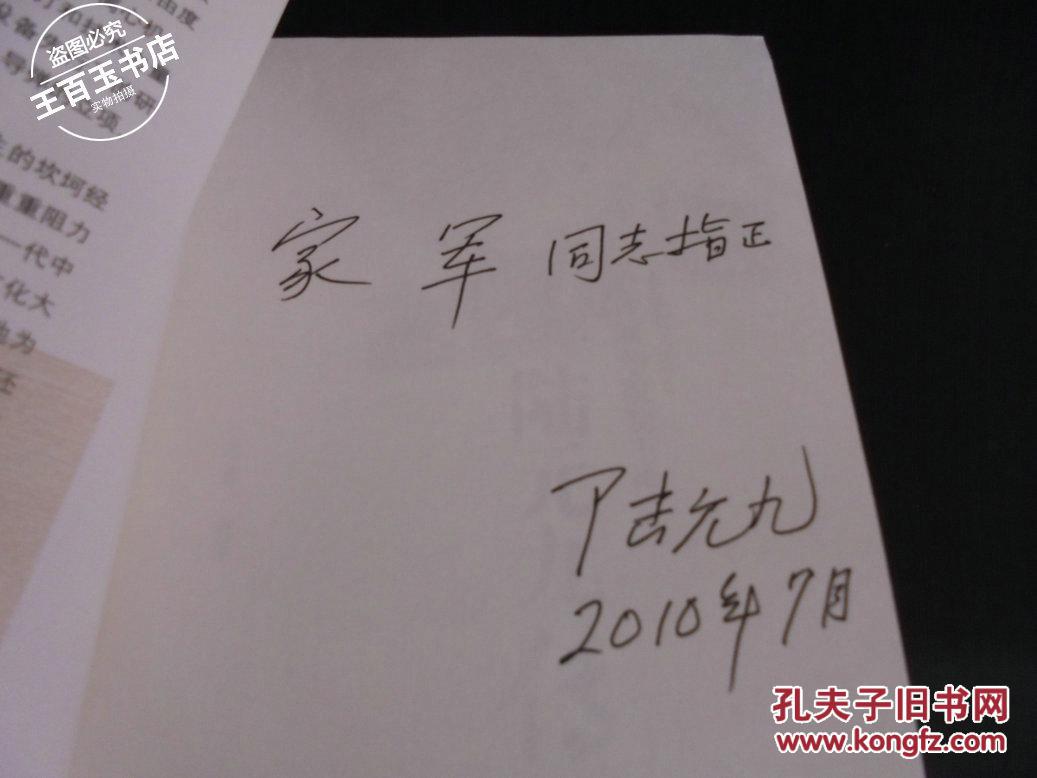 由度
设备
导
研
立项
生的坎坷经
重重阻力
一代中
文化大
地为
盗图必究
王百玉书店
实物拍摄
家军同志指正
陆
陆元九
2010年7月
孔夫子旧书网
www.kongfz.com